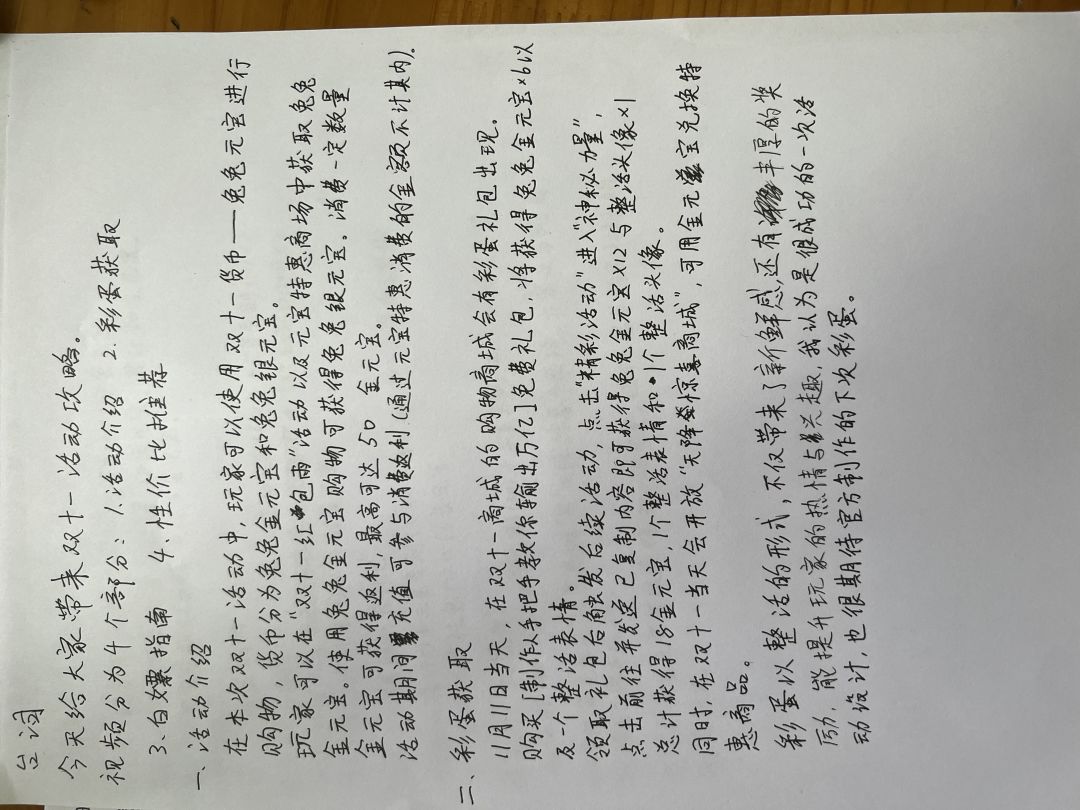 台词
今天给大家带来双十一活动攻略。
视频分为4个部分：1.活动介绍 2.彩蛋获取
3.白嫖指南 4.性价比推荐
一、活动介绍
在本次双十一活动中，玩家可以使用双十一货币——兔兔元宝进行
购物，货币分为兔兔金元宝和兔兔银元宝。
玩家可以在“双十一红包雨”活动以及元宝特惠商场中获取兔兔
金元宝。使用兔兔金元宝购物可获得兔兔银元宝。消费一定数量
金元宝可获得返利，最高可达50 金元宝。
活动期间充值可参与消费返利（通过元宝特惠消费的金额不计其内）.
二、彩蛋获取
11月11日当天，在双十一商城的购物商城会有彩蛋礼包出现。
购买［制作队手把手教你输出万亿］免费礼包，将获得兔兔金元宝×6以
及一个整活表情。
领取礼包后触发后续活动，点击“精彩活动”进入“神秘力量”，
点击前往并发送已复制内容即可获得兔兔金元宝×12与整活头像×1
总计获得18金元宝，1个整活表情和1个整活头像。
同时，在双十一当天会开放“天降惊喜商城”，可用金元宝兑换特
惠商品。
彩蛋以整活的形式，不仅带来了新鲜感，还有丰厚的奖
励，能提升玩家的热情与兴趣，我认为是很成功的一次活
动设计，也很期待官方制作的下次彩蛋。